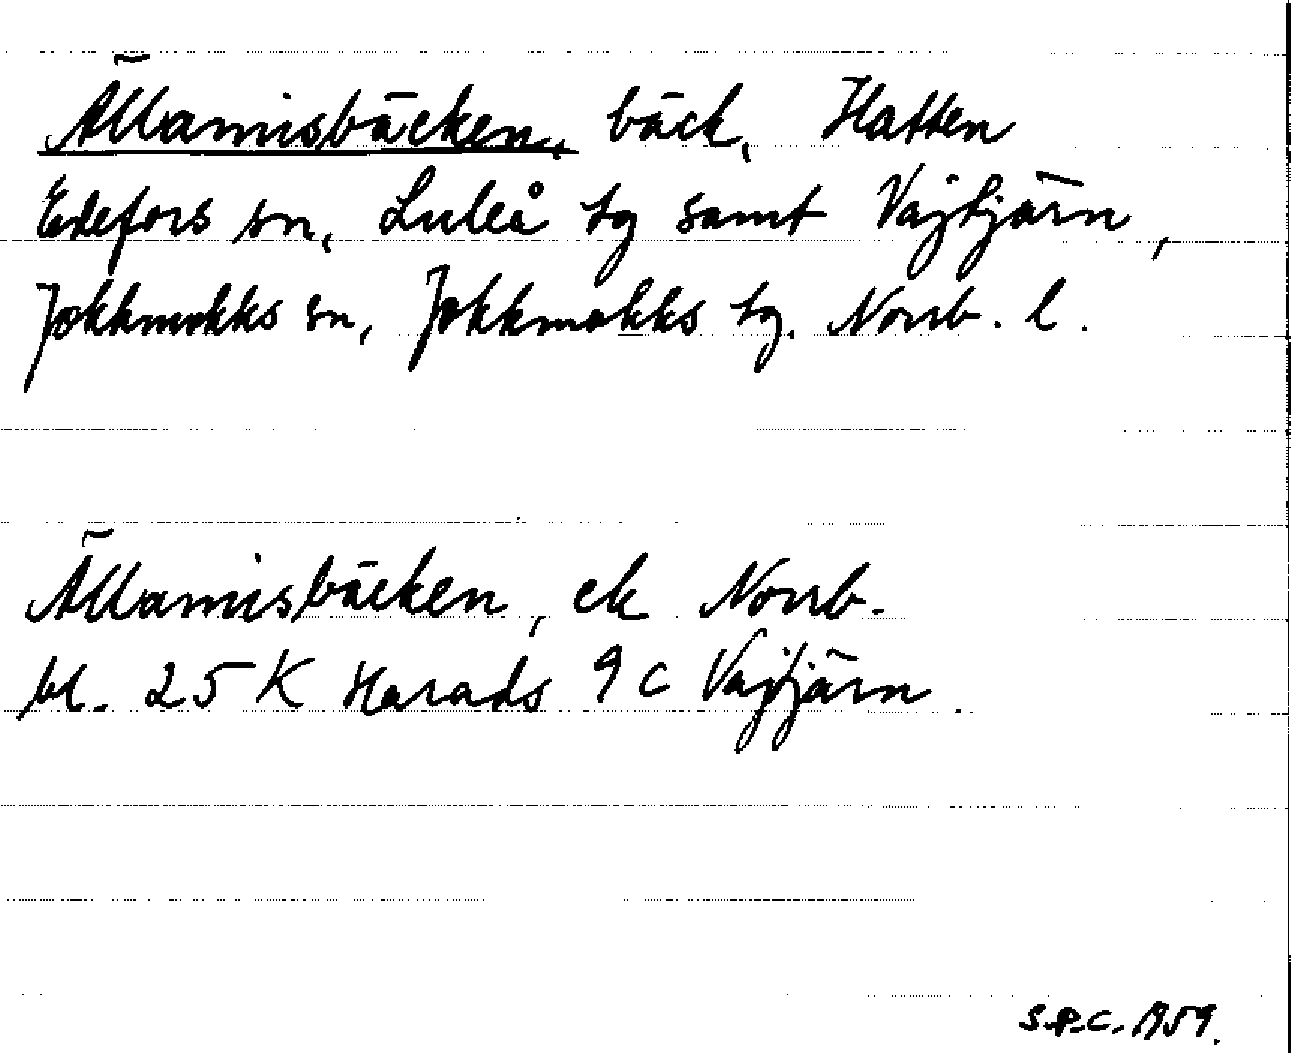 Ällamisbäcken, bäck, Hatten
Edefors sn, Luleå tg samt Vajtjärn,
Jokkmokks sn, Jokkmokks tg. Norrb. l.
Ällamisbäcken, ek Norrb.
bl. 25 K Harads 9 c Vajtjärn.
S.P.C. 1959.